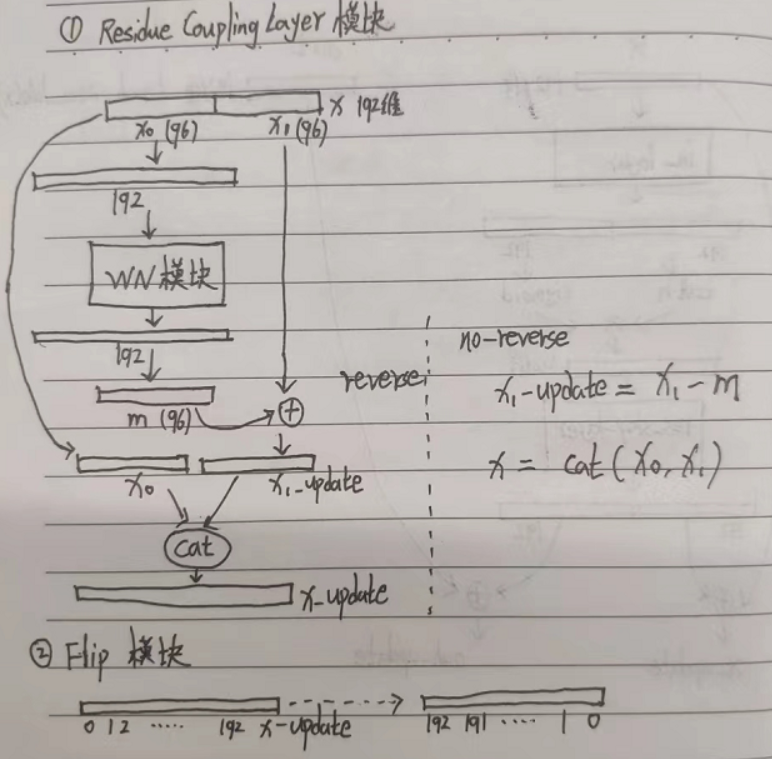 ① Residue Coupling Layer 模块
x 192维
x0 (96) x1 (96)
192
WN 模块
192
m (96)
+
x0 x1-update
cat
x-update
reverse
no-reverse
x1-update = x1 - m
x = cat(x0, x1)
② Flip 模块
0 1 2 ..... 192 x-update 192 191 .... 1 0